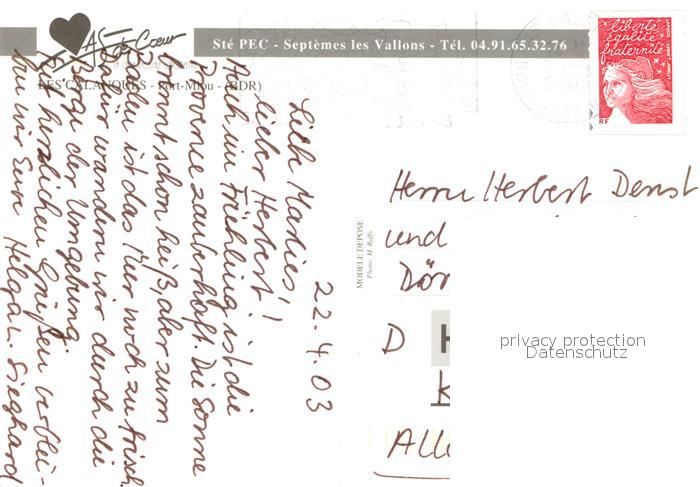 As de Cœur
Sté PEC - Septèmes les Vallons - Tél. 04.91.65.32.76
LES CALANQUES - Port-Miou - (BDR)
liberté
égalité
fraternité
RF
22.4.03
Liebe Marlies!
lieber Herbert!
Auch im Frühling ist die
Provence zauberhaft. Die Sonne
kommt schon heiß, aber zum
Baden ist das Meer noch zu frisch.
Dafür wandern wir durch die
Berge der Umgebung.
Mit herzlichen Grüßen verblei-
ben wir Eure Helga u. Sieghard
MODELE DEPOSE
Photo: M. Raffy
Herrn Herbert Denst
und
Dör
D H
K
Alle
privacy protection
Datenschutz